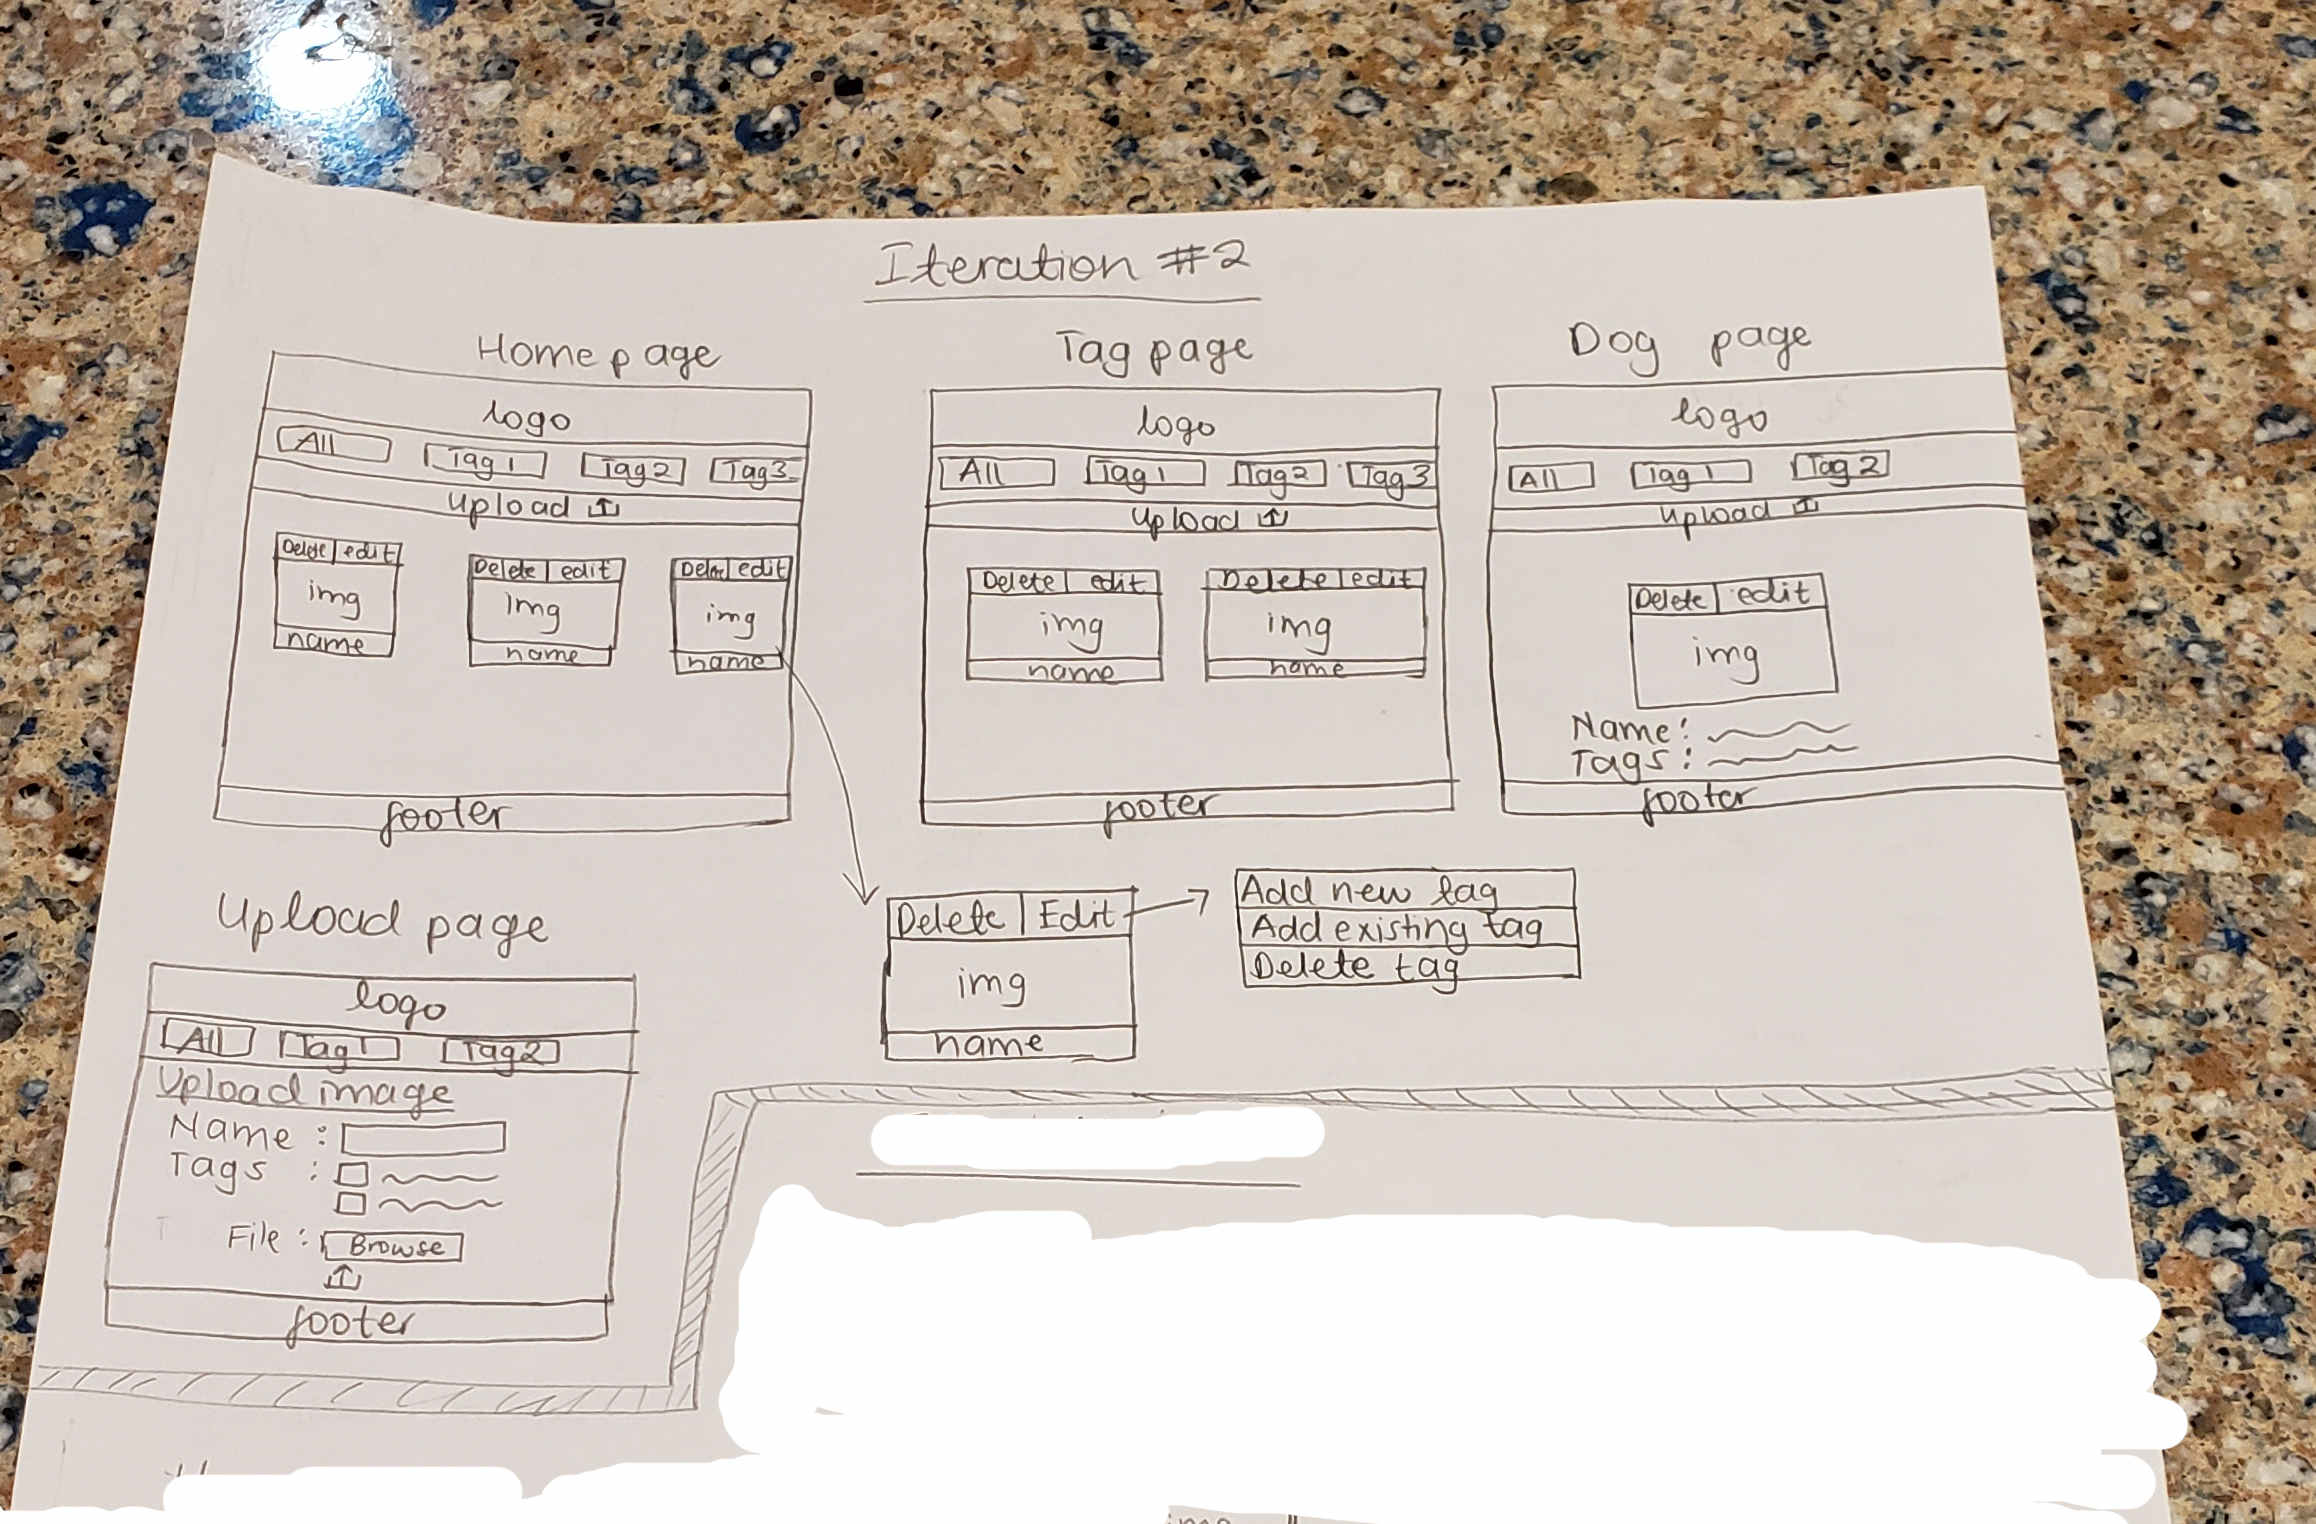 Iteration #2
Home page
logo
All Tag1 Tag2 Tag3
Upload
Delete edit Delete edit Delete edit
img img img
name name name
footer
Tag page
logo
All Tag1 Tag2 Tag3
Upload
Delete edit Delete edit
img img
name name
footer
Dog page
logo
All Tag1 Tag2
Upload
Delete edit
img
Name:
Tags:
footer
Delete Edit
img
name
Add new tag
Add existing tag
Delete tag
Upload page
logo
All Tag1 Tag2
Upload image
Name :
Tags :
File : Browse
footer